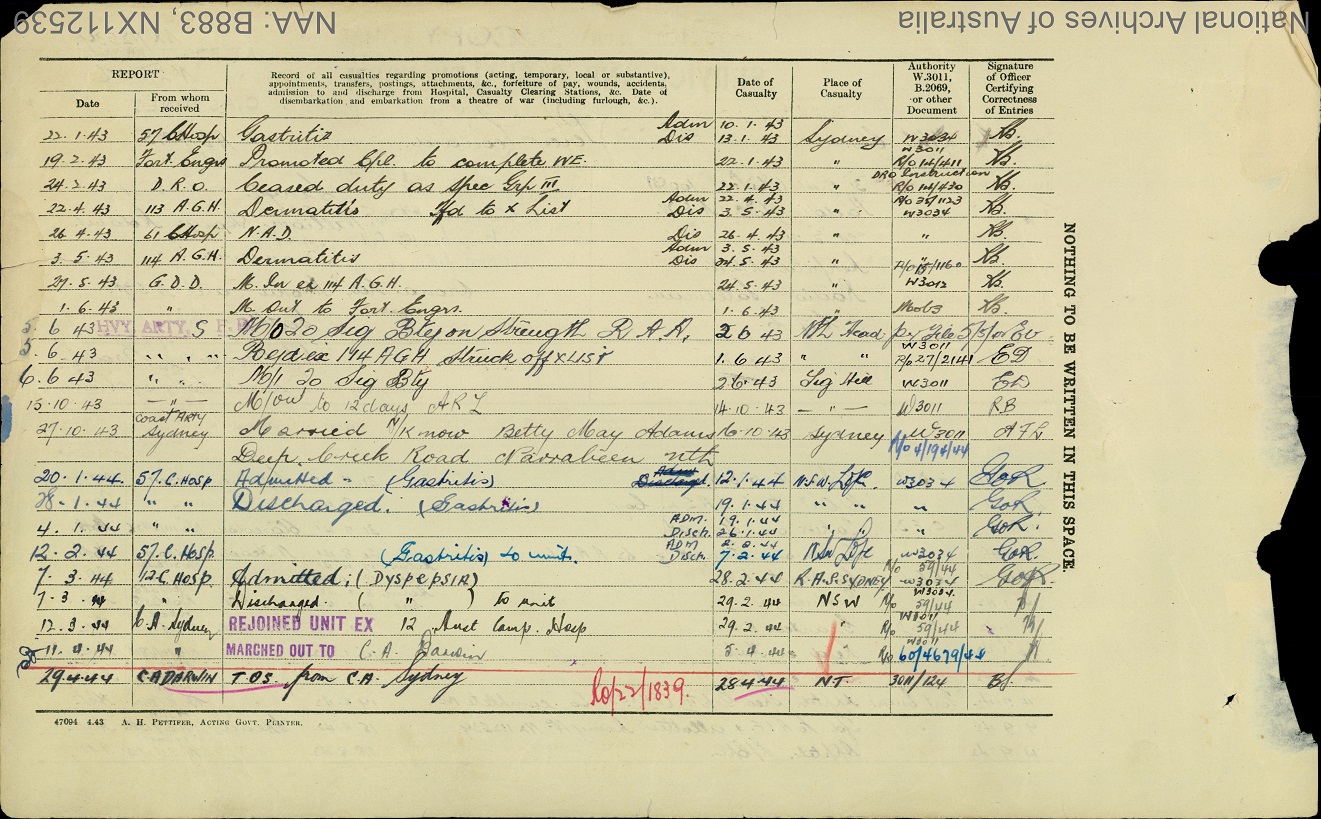 National Archives of Australia NAA: B883, NX112539
REPORT
Date
From whom received
Record of all casualties regarding promotions (acting, temporary, local or substantive),
appointments, transfers, postings, attachments, &c., forfeiture of pay, wounds, accidents,
admission to and discharge from Hospital, Casualty Clearing Stations, &c. Date of
disembarkation and embarkation from a theatre of war (including furlough, &c.).
Date of Casualty
Place of Casualty
Authority W.3011, B.2069, or other Document
Signature of Officer Certifying Correctness of Entries
22.1.43 57 C Hosp Gastritis Adm 10.1.43 Dis 13.1.43 Sydney W3034
19.2.43 Fort. Engrs Promoted Cpl. to complete WE. 22.1.43 " W3011 R/O 14/411
24.2.43 D.R.O. Ceased duty as Spec Grp III 22.1.43 " DRO Instruction R/O 14/430
22.4.43 113 A.G.H. Dermatitis to X List Adm 22.4.43 Dis 3.5.43 " W3034
26.4.43 61 C Hosp N.A.D. Dis 26.4.43 " "
3.5.43 114 A.G.H. Dermatitis Adm 3.5.43 Dis 24.5.43 "
27.5.43 G.D.D. M. In ex 114 A.G.H. 24.5.43 " W3012
1.6.43 " M. Out to Fort Engrs. 1.6.43 "
5.6.43 HVY. ARTY. Sig Bty on Strength R.A.A. 2 6 43 Nth Head
5.6.43 " " " Rejd ex 114 AGH Struck off X LIST 1.6.43 " " W3011 R/O 27/2141 ED
6.6.43 " " To Sig Bty 2 6.43 Sig Hill W3011 ED
15.10.43 — " — M/out to 12 days ARL 14.10.43 — " — W3011 RB
27.10.43 Coast ARTY Sydney Married N/K now Betty May Adams 16.10.43 Sydney W3011 AFL
Deep Creek Road Narrabeen Nth R/O 4/194/44
20.1.44 57.C.Hosp Admitted - (Gastritis) 12.1.44 N.S.W. L of C. W3034 GoR
28.1.44 " " Discharged. (Gastritis) 19.1.44 " " " GoR.
4.1.44 " " ADM. 19.1.44 Disch. 26.1.44 " " " GoR.
12.2.44 57.C.Hosp (Gastritis) to unit. ADM 2.2.44 Disch. 7.2.44 NSW L of C W3034 GoR.
7.3.44 12 C.Hosp Admitted; (DYSPEPSIA) 28.2.44 R.A.S. SYDNEY R/O 59/44 W3034 GoR.
7.3.44 " Discharged. ( " ) to unit 29.2.44 NSW W3034. R/O 59/44
12.3.44 C.A. Sydney REJOINED UNIT EX 12 Aust Camp. Hosp 29.2.44 " W3011 R/O 59/44
11.4.44 " MARCHED OUT TO C.A. Darwin 5.4.44 W3011 R/O 60/4679/44
29.4.44 C.A DARWIN T.O.S. from C.A. Sydney Ro/22/1839. 28.4.44 N.T. 3011/124
47094 4.43 A. H. PETTIFER, ACTING GOVT. PRINTER.
NOTHING TO BE WRITTEN IN THIS SPACE.